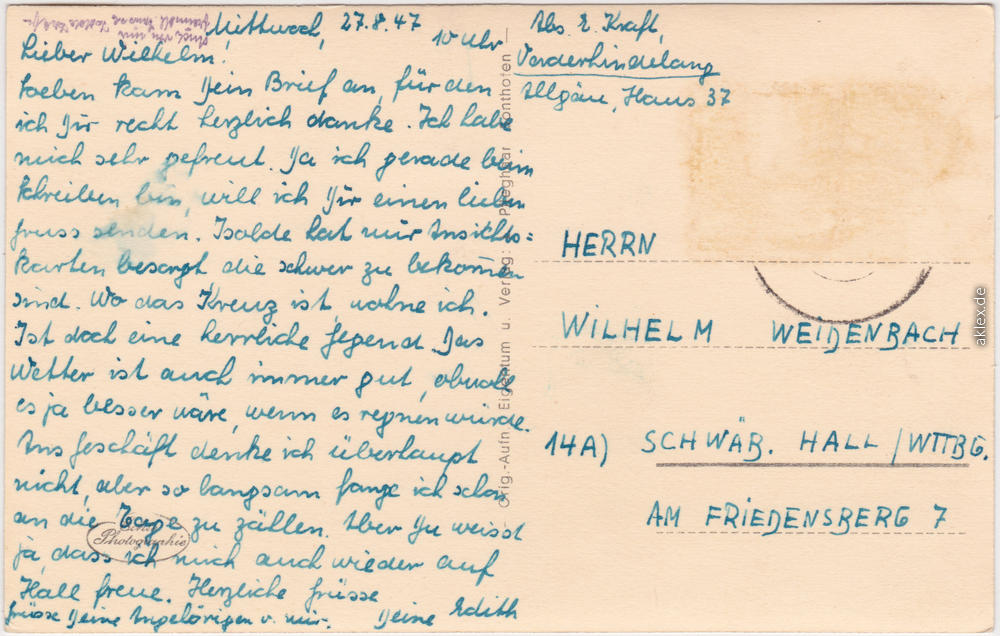 Mittwoch, 27.8.47
10 Uhr
Lieber Wilhelm!
Soeben kam Dein Brief an, für den
ich Dir recht herzlich danke. Ich habe
mich sehr gefreut. Da ich gerade beim
Schreiben bin, will ich Dir einen lieben
Gruss senden. Isolde hat mir Ansichts=
karten besorgt die schwer zu bekommen
sind. Wo das Kreuz ist, wohne ich.
Ist doch eine herrliche Gegend. Das
Wetter ist auch immer gut, obwohl
es ja besser wäre, wenn es regnen würde.
Ans Geschäft denke ich überhaupt
nicht, aber so langsam fange ich schon
an die Tage zu zählen. Aber Du weisst
ja, dass ich mich auch wieder auf
Hall freue. Herzliche Grüsse
Deine Edith
Grüsse Deine Angehörigen v. mir.
Echte
Photographie
Orig.-Aufn. Eigentum u. Verlag:
Abs. E. Kraft,
Vorderhindelang
Allgäu, Haus 37
HERRN
WILHELM WEIDENBACH
14A) SCHWÄB. HALL / WTTBG.
AM FRIEDENSBERG 7
aklex.de